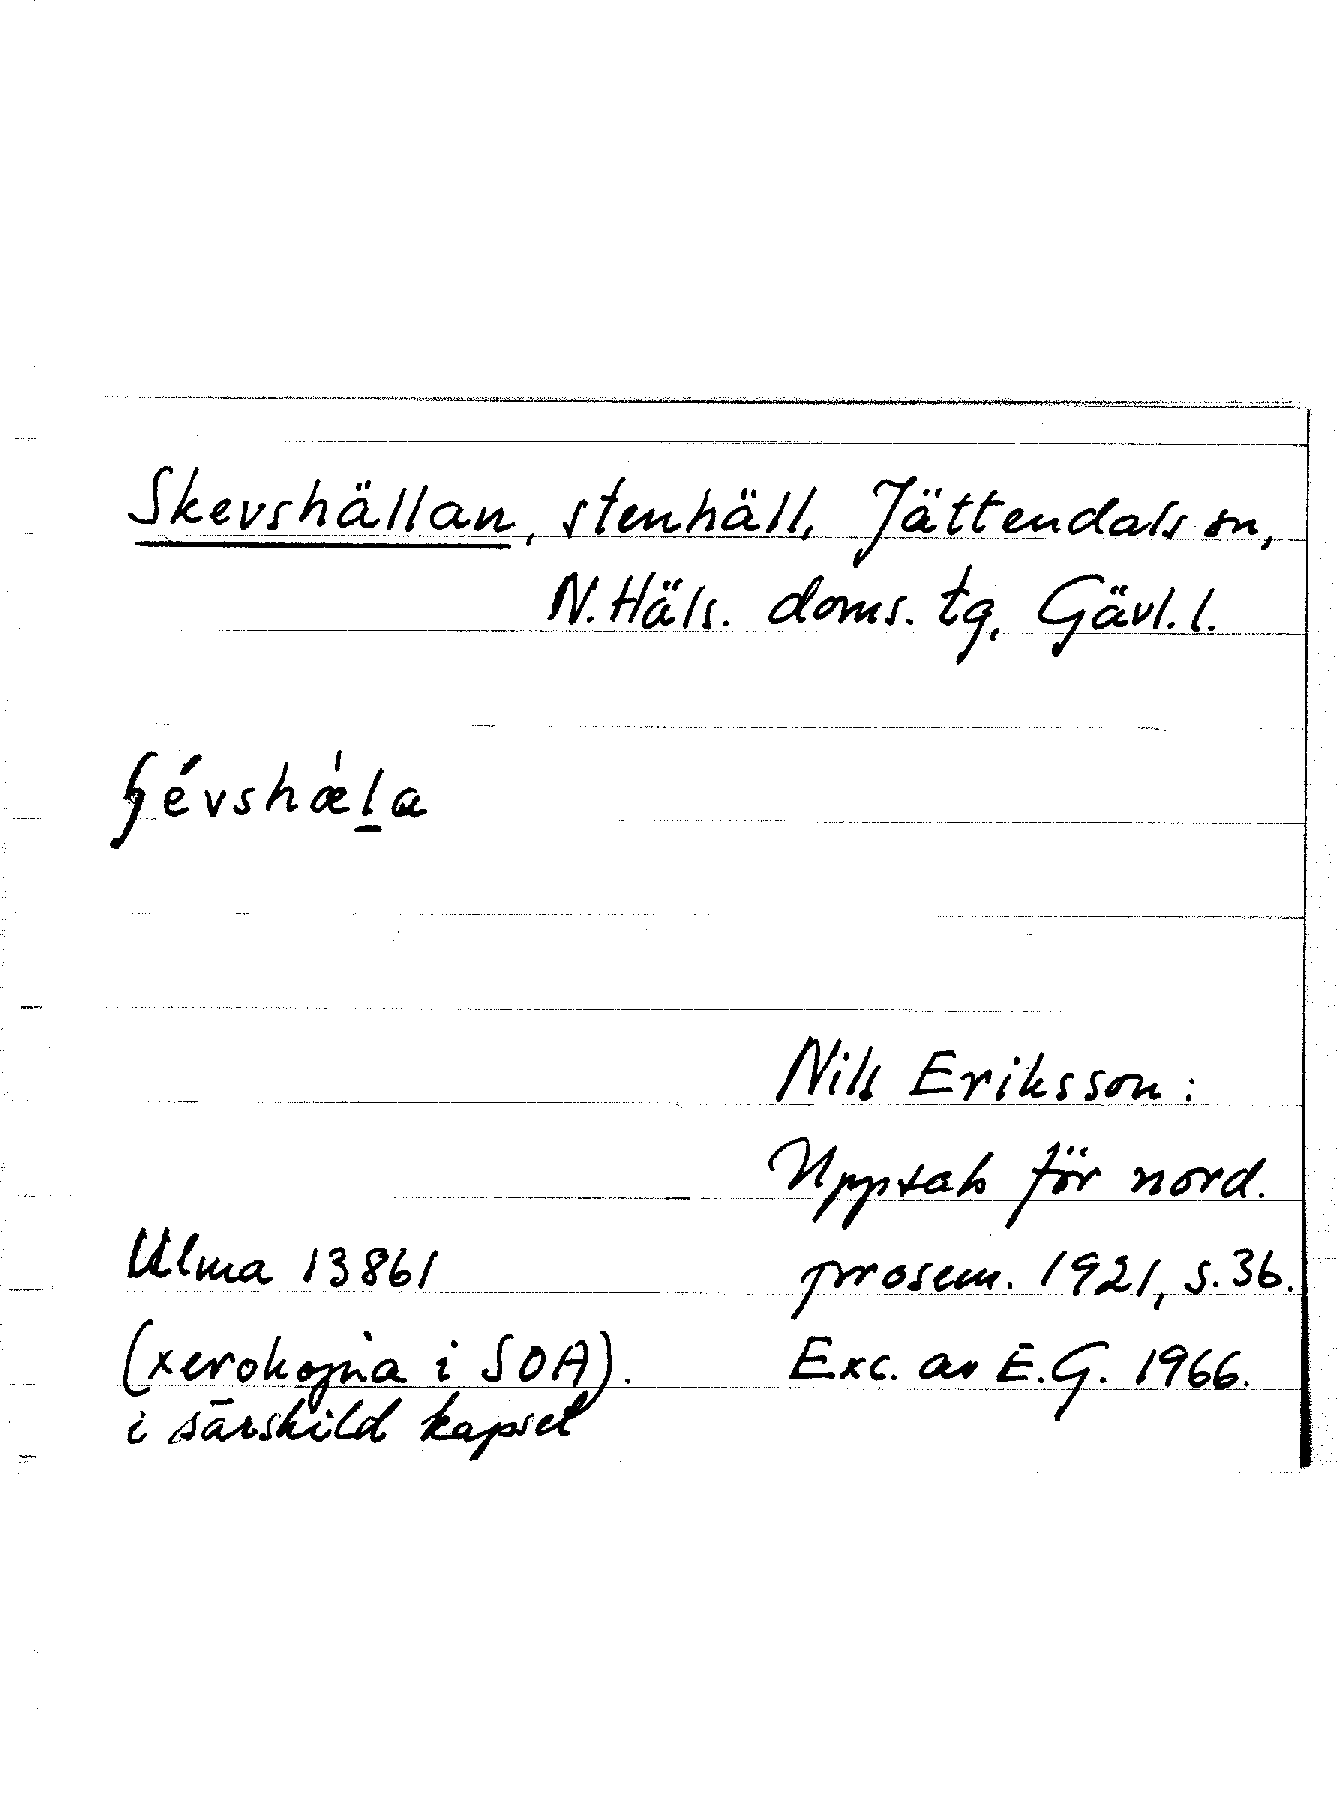 Skevshällan, stenhäll, Jättendals sn,
N. Häls. doms. tg, Gävl. l.
ʃévshæ̀l̠a
Nils Eriksson:
Uppsats för nord.
Ulma 13861 prosem. 1921, s. 36.
(xerokopia i SOA). Exc. av E.G. 1966.
i särskild kapsel